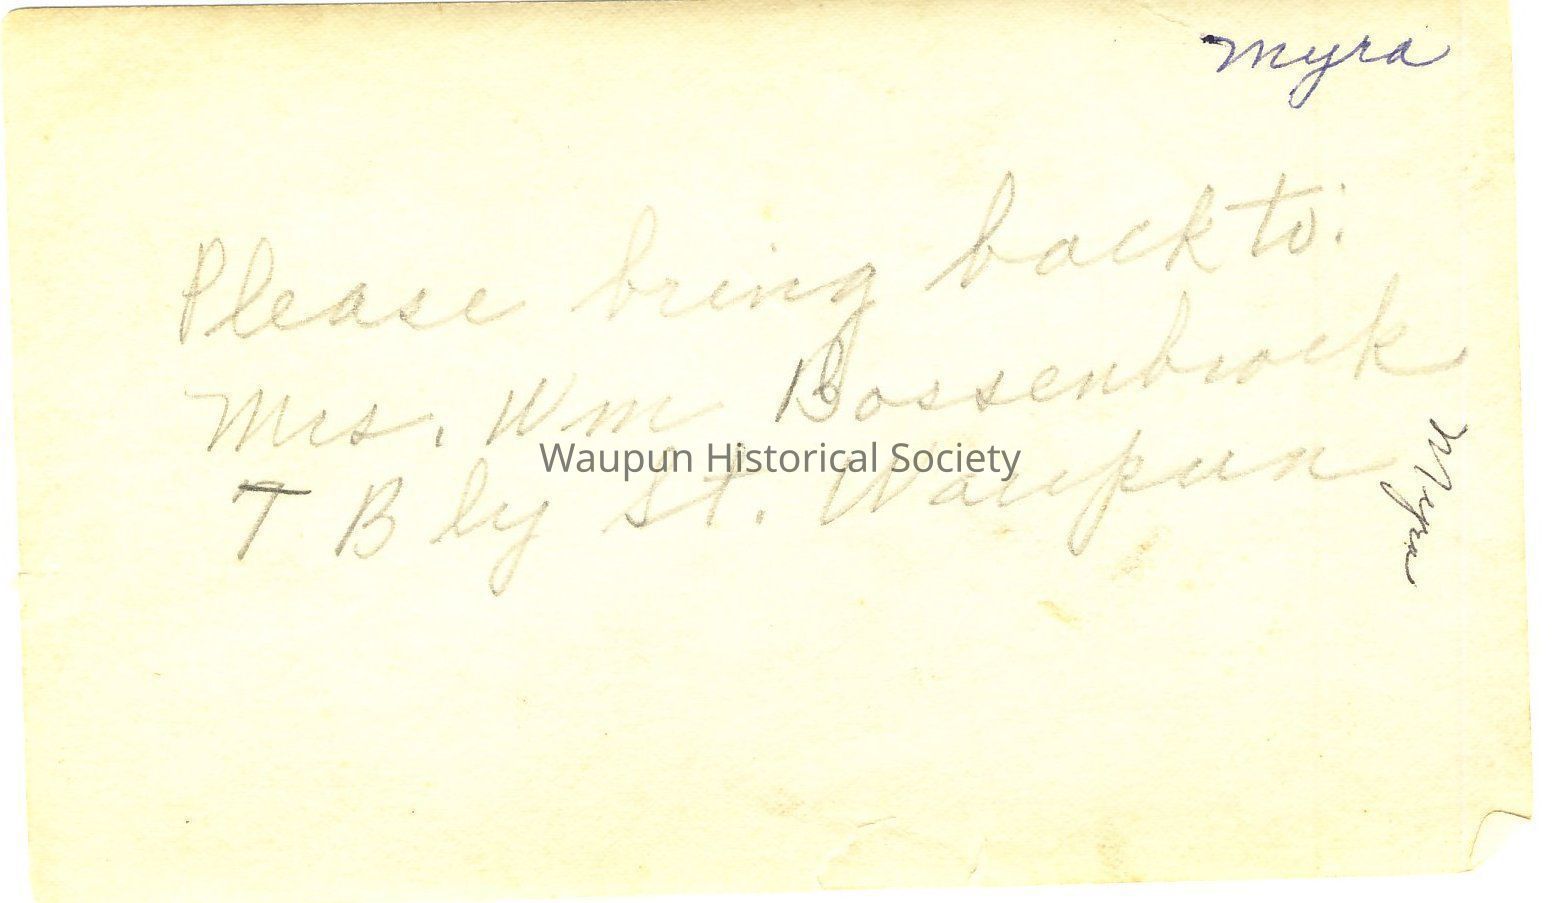 Myra
Please bring back to:
Mrs. Wm Bossenbrock
Waupun Historical Society
7 B ly St. Waupun
Myra